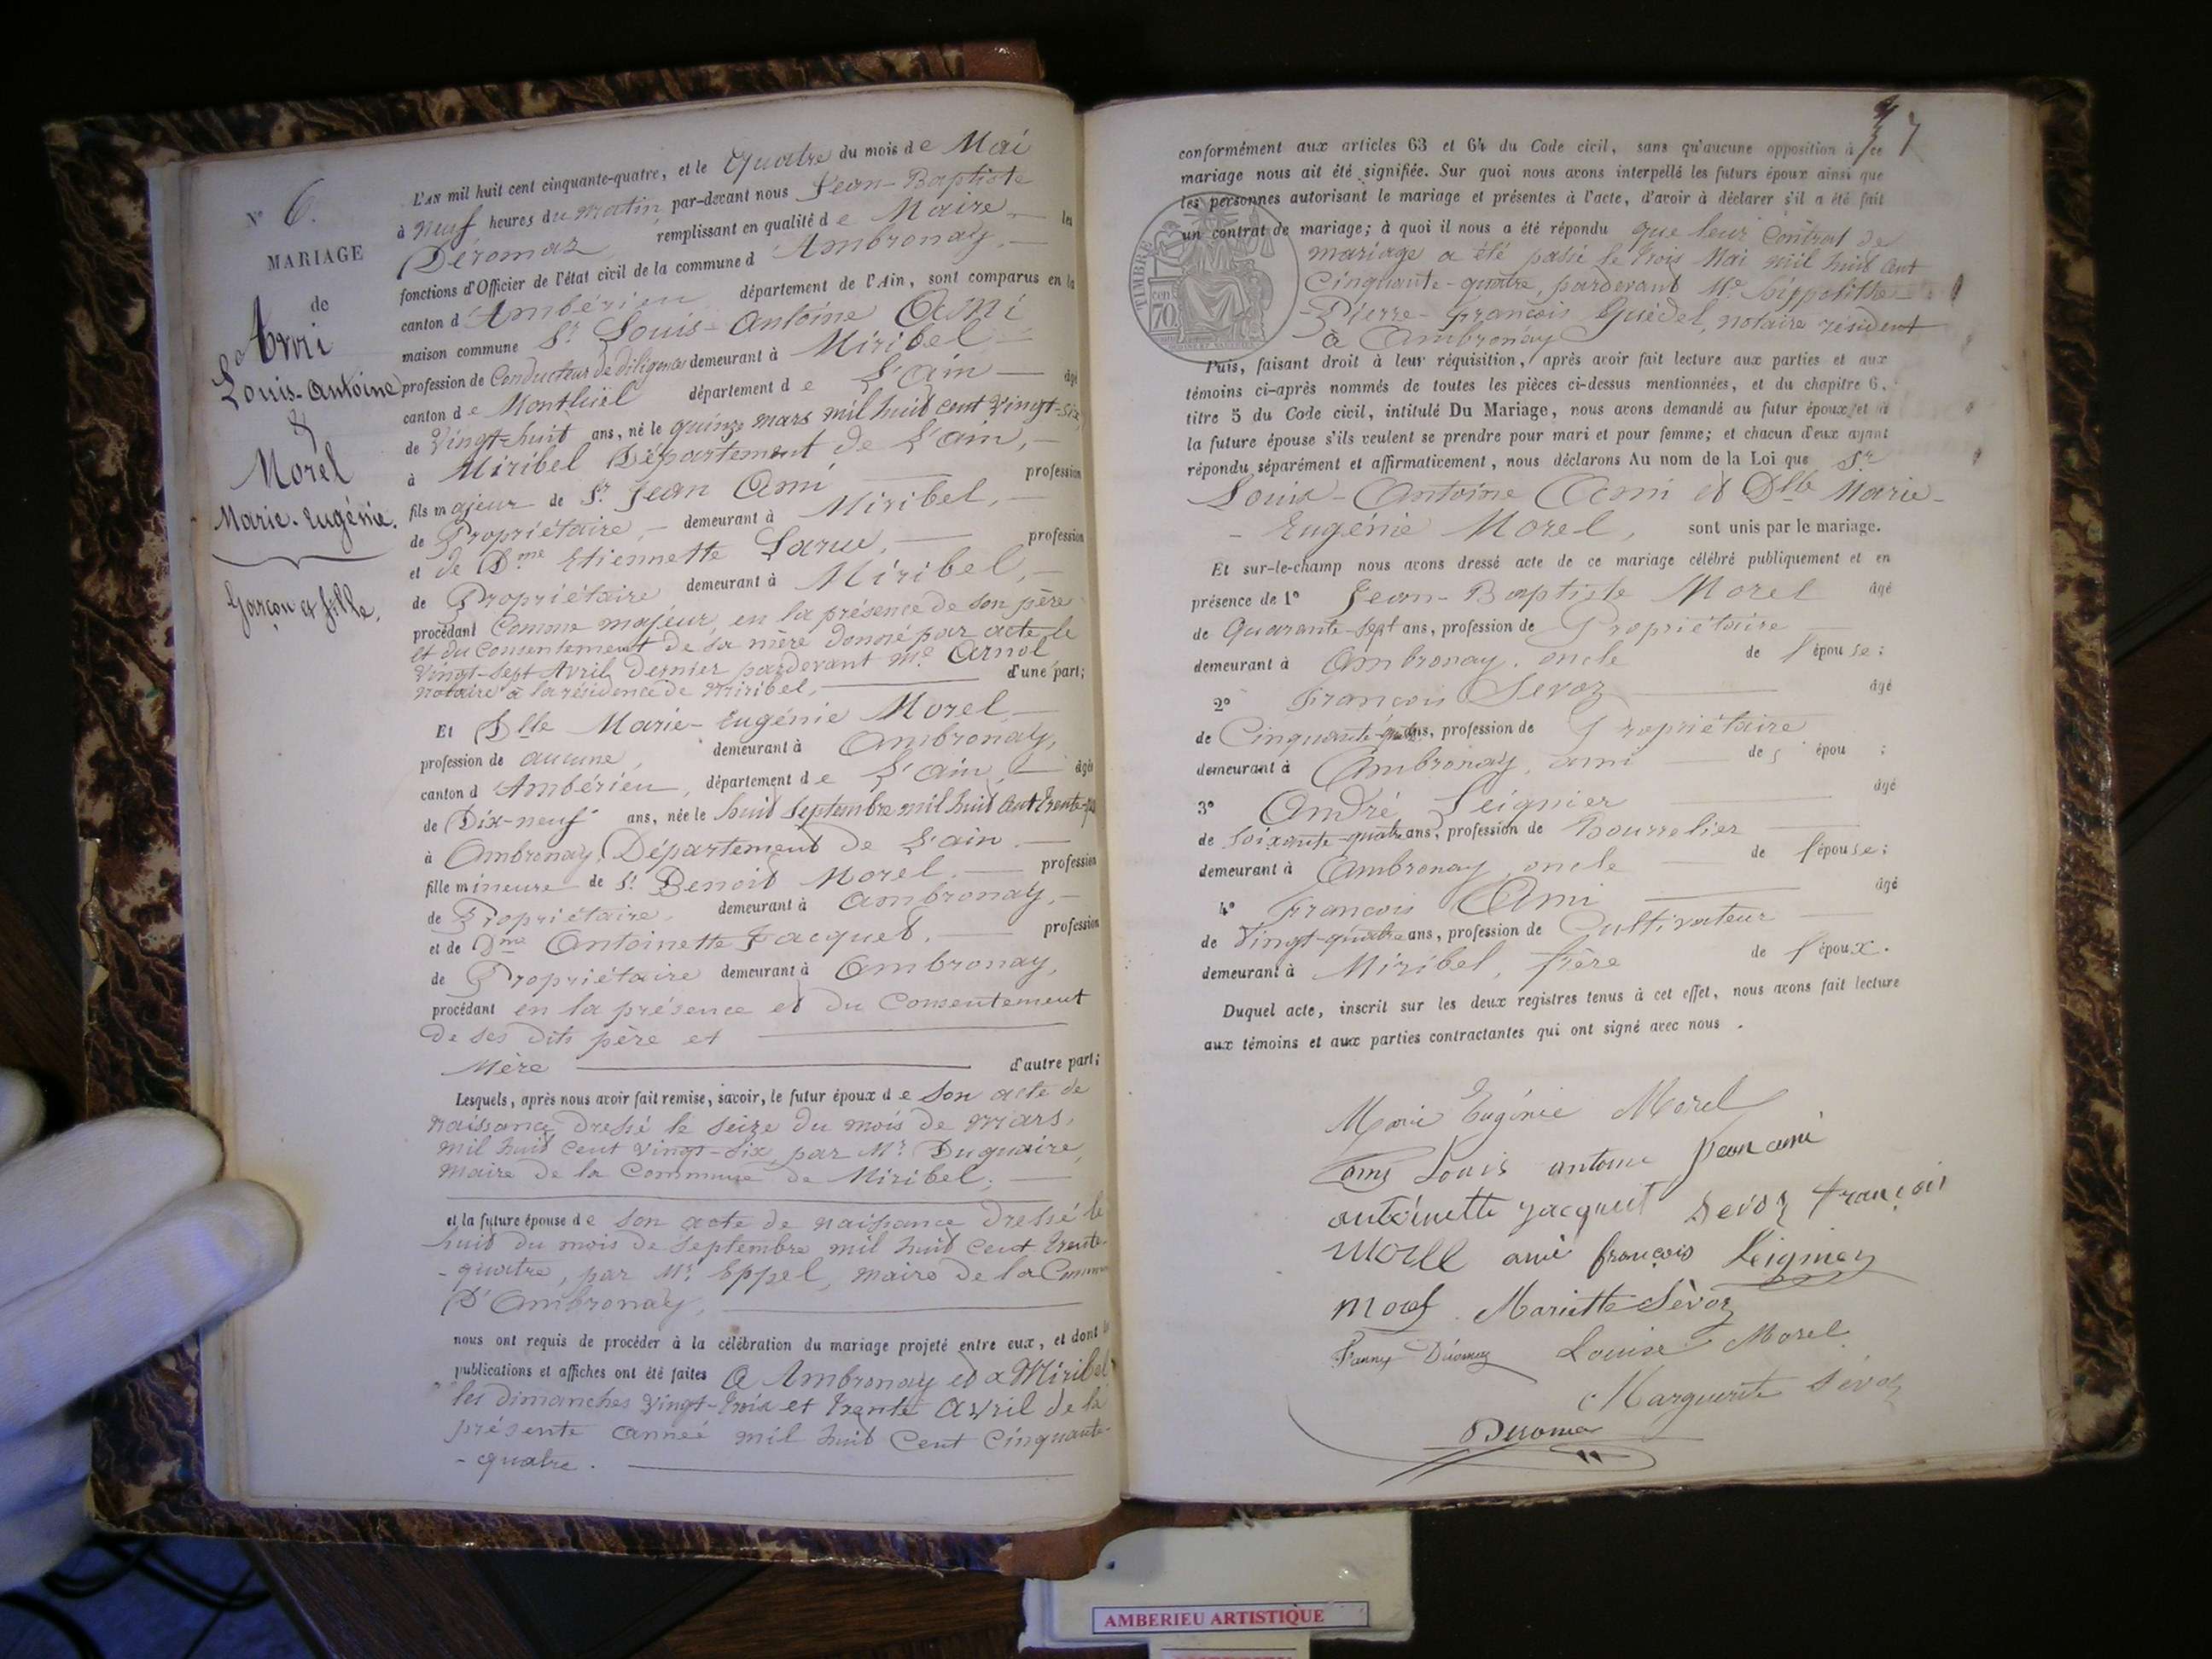 N° 6.
MARIAGE
de
Ami
Louis-Antoine
&
Morel
Marie-Eugénie.
Garçon et fille.
L'AN mil huit cent cinquante-quatre, et le Quatre du mois de Mai
à neuf heures du matin, par-devant nous Jean-Baptiste
Déromaz remplissant en qualité de Maire, les
fonctions d'Officier de l'état civil de la commune d'Ambronay,
canton d'Ambérieu département de l'Ain, sont comparus en la
maison commune Sr Louis-Antoine Ami
profession de Conducteur de diligence demeurant à Miribel
canton de Montluel département de L'ain âgé
de Vingt-huit ans, né le quinze mars mil huit cent vingt-six
à Miribel Département de L'ain,
fils majeur de Sr Jean Ami profession
de Propriétaire, demeurant à Miribel,
et de Dme Etiennette Larue, profession
de Propriétaire demeurant à Miribel,
procédant Comme majeur, en la présence de son père
et du consentement de sa mère donné par acte le
vingt-sept Avril Dernier pardevant Me Arnol
notaire à la résidence de Miribel, d'une part;
Et Dlle Marie-Eugénie Morel
profession de aucune, demeurant à Ambronay,
canton d'Ambérieu, département de L'ain, âgée
de Dix-neuf ans, née le huit Septembre mil huit cent trente-
à Ambronay, Département de L'ain.
fille mineure de Sr Benoit Morel. profession
de Propriétaire, demeurant à Ambronay,
et de Dme Antoinette Jacquet, profession
de Propriétaire demeurant à Ambronay,
procédant en la présence et du Consentement
De ses dits père et
Mère d'autre part;
Lesquels, après nous avoir fait remise, savoir, le futur époux de son acte de
naissance dressé le seize du mois de mars,
mil huit cent vingt-six, par Mr Duquaire,
maire de la Commune de Miribel;
et la future épouse de son acte de naissance Dressé le
huit du mois de Septembre mil huit cent trente-
-quatre, par Mr Eppel, maire de la Commune
D'Ambronay,
nous ont requis de procéder à la célébration du mariage projeté entre eux, et dont les
publications et affiches ont été faites à Ambronay et à Miribel
les dimanches vingt-trois et trente avril de la
présente année mil huit Cent Cinquante-
-quatre.
37
conformément aux articles 63 et 64 du Code civil, sans qu'aucune opposition à ce
mariage nous ait été signifiée. Sur quoi nous avons interpellé les futurs époux ainsi que
les personnes autorisant le mariage et présentes à l'acte, d'avoir à déclarer s'il a été fait
un contrat de mariage; à quoi il nous a été répondu que leur Contrat de
mariage a été passé le trois Mai mil huit cent
Cinquante-quatre, pardevant Me hippolithe
Pierre-François Guédel, notaire résident
à Ambronay
TIMBRE
70 cen
Puis, faisant droit à leur réquisition, après avoir fait lecture aux parties et aux
témoins ci-après nommés de toutes les pièces ci-dessus mentionnées, et du chapitre 6,
titre 5 du Code civil, intitulé Du Mariage, nous avons demandé au futur époux et à
la future épouse s'ils veulent se prendre pour mari et pour femme; et chacun d'eux ayant
répondu séparément et affirmativement, nous déclarons Au nom de la Loi que Sr
Louis-Antoine Ami et Dlle Marie-
-Eugénie Morel, sont unis par le mariage.
Et sur-le-champ nous avons dressé acte de ce mariage célébré publiquement et en
présence de 1° Jean-Baptiste Morel âgé
de Quarante-sept ans, profession de Propriétaire
demeurant à Ambronay, oncle de l'épouse;
2° François Sevoz âgé
de Cinquante-quatre ans, profession de Propriétaire
demeurant à Ambronay, ami de épou ;
3° André Leignier âgé
de soixante-quatre ans, profession de bourrelier
demeurant à Ambronay, oncle de l'épouse;
4° François Ami âgé
de Vingt-quatre ans, profession de Cultivateur
demeurant à Miribel, frère de l'époux.
Duquel acte, inscrit sur les deux registres tenus à cet effet, nous avons fait lecture
aux témoins et aux parties contractantes qui ont signé avec nous.
Marie Eugénie Morel
amy Louis antoine Jean ami
antoinette jacquet Sevoz françois
Morel ami françois Leignier
Morel Mariette Sèvoz
Fanny Déromaz Louise Morel
Marguerite Sévoz
Deromaz
AMBERIEU ARTISTIQUE